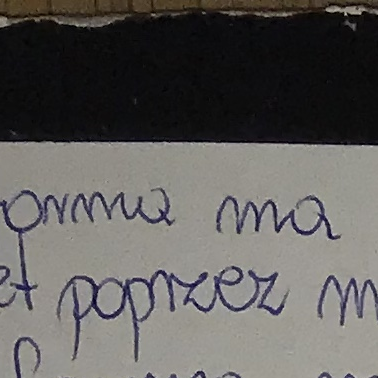 orma ma
et poprzez m